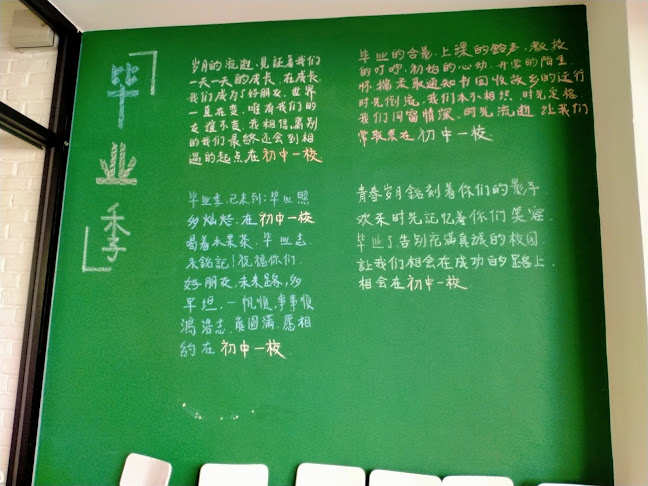 毕业季
岁月的流逝,见证着我们
一天一天的成长,在成长
我们成为了好朋友,世界
一直在变,唯有我们的
友谊不变,我相信,离别
的我们最终还会到相
遇的起点在初中一校
毕业的合影,上课的铃声,教授
的叮咛,初始的心动,开学的陌生
怀揣录取通知书回收故乡的远行
时光倒流,我们本不相识,时光定格
我们同窗情深,时光流逝,让我们
常取集在初中一校
毕业季,已来到;毕业照
多灿烂,在初中一校
喝着水果茶,毕业志
来銘記!祝福你们
好朋友,未来路,多
平坦,一帆顺,事事顺
鴻浩志,能圆满,愿相
約在初中一校
青春岁月銘刻着你们的影子
欢乐时光記忆着你们笑容
毕业了告别充滿真誠的校园
讓我们相会在成功的路上
相会在初中一校